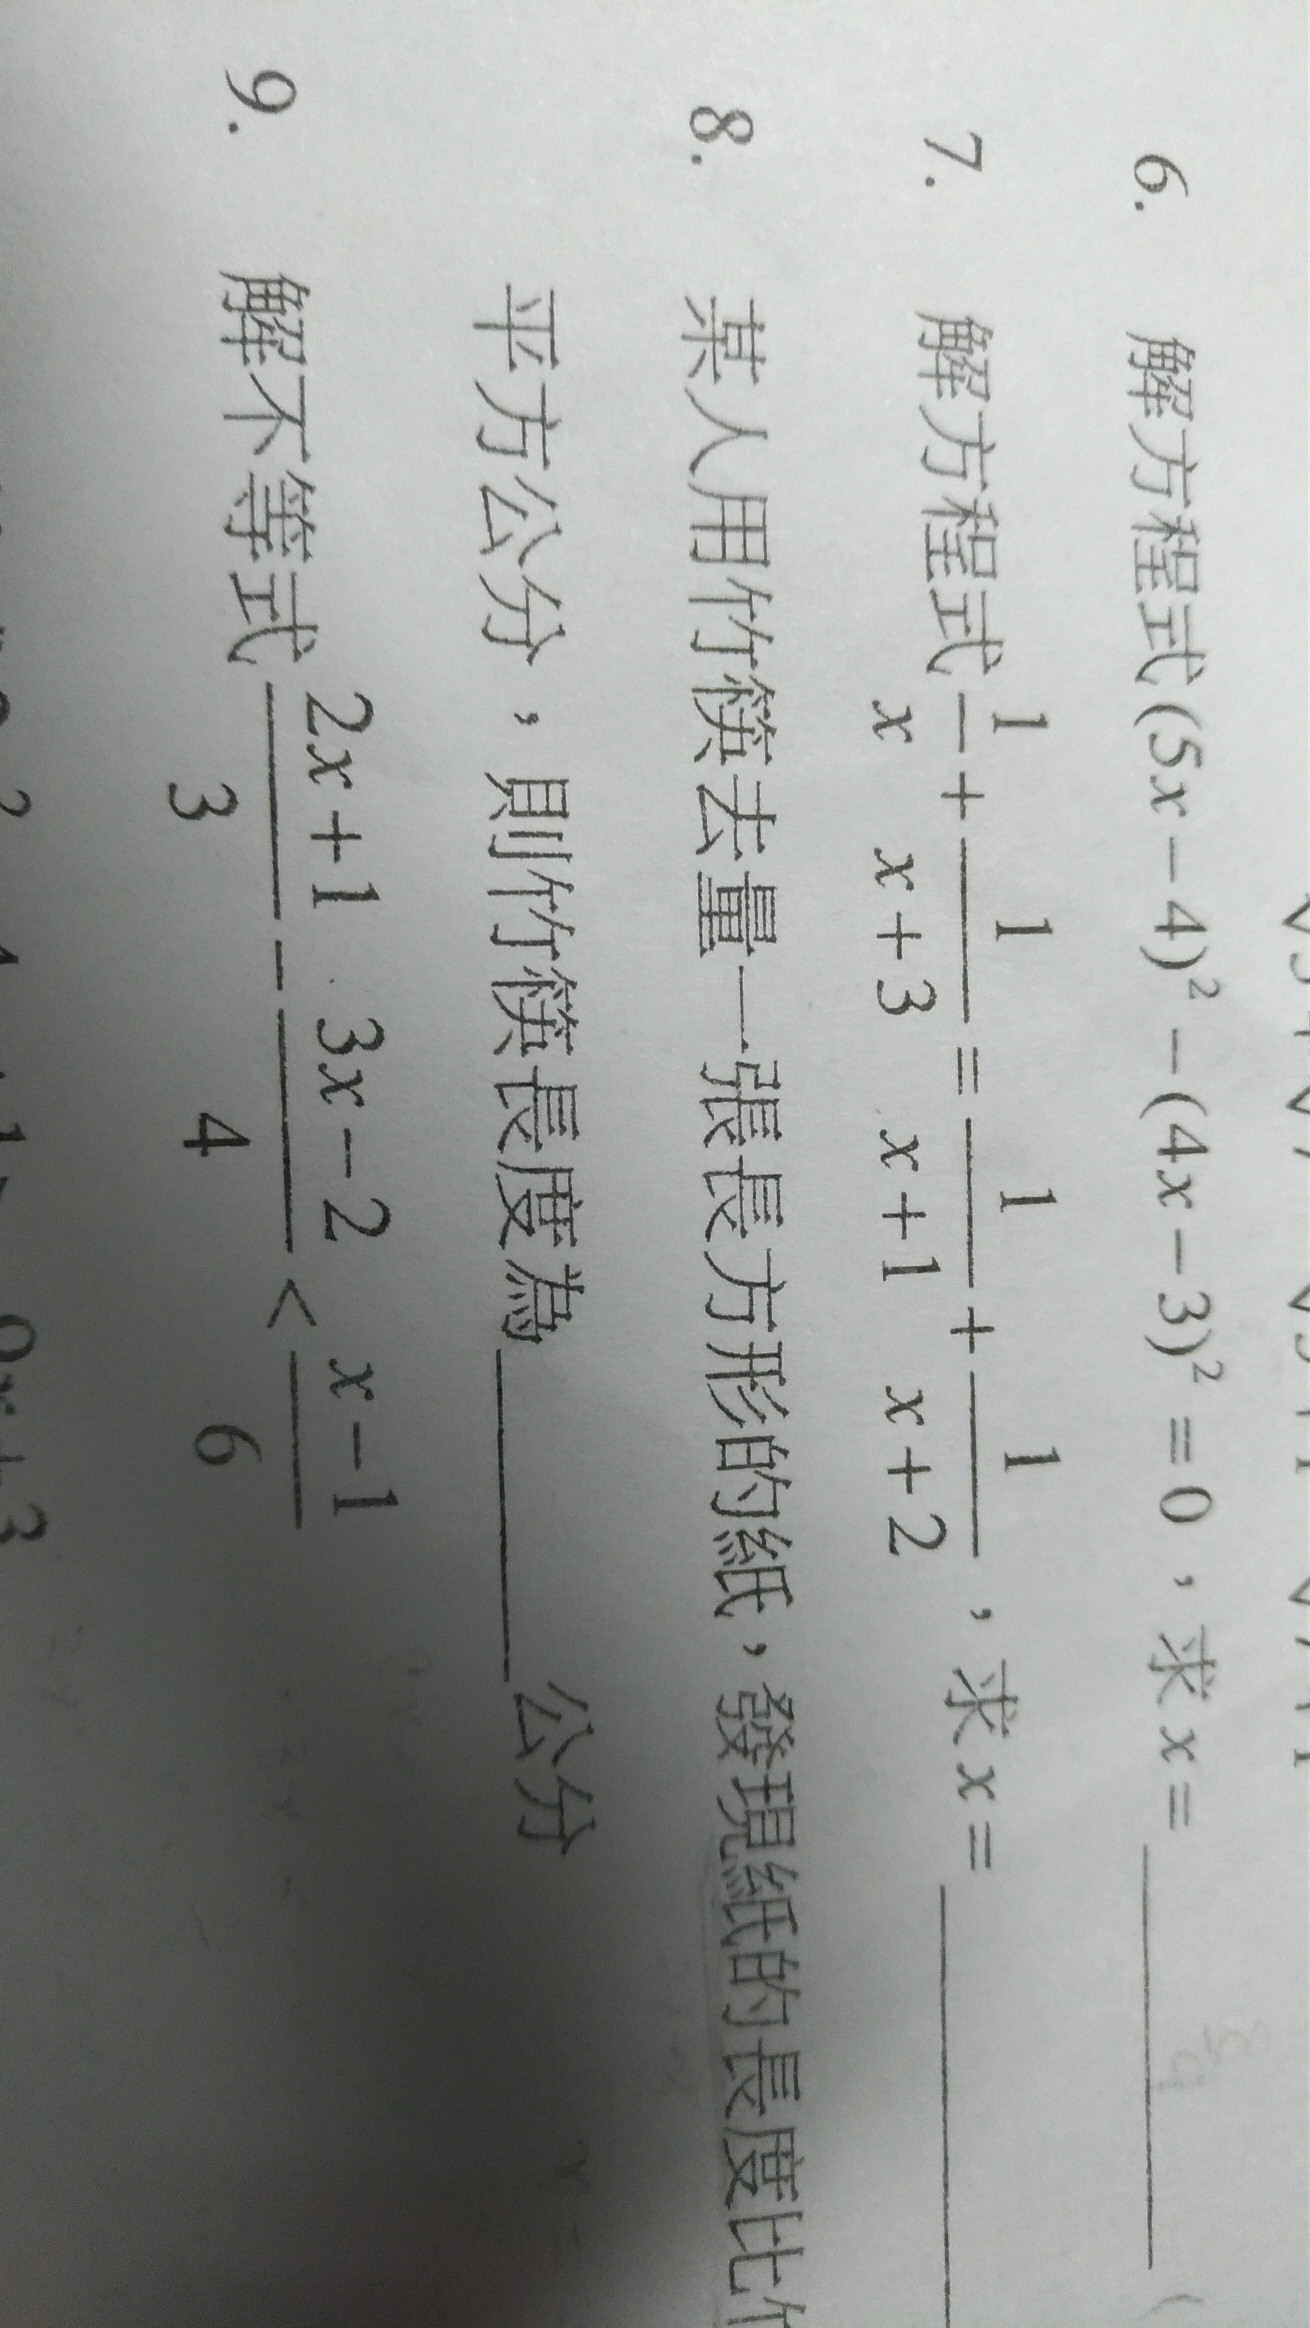 6. 解方程式(5x－4)²－(4x－3)²＝0，求x＝________(
7. 解方程式 1/x + 1/(x+3) = 1/(x+1) + 1/(x+2)，求x＝________
8. 某人用竹筷去量一張長方形的紙，發現紙的長度比
平方公分，則竹筷長度為________公分
9. 解不等式 (2x+1)/3 - (3x-2)/4 < (x-1)/6